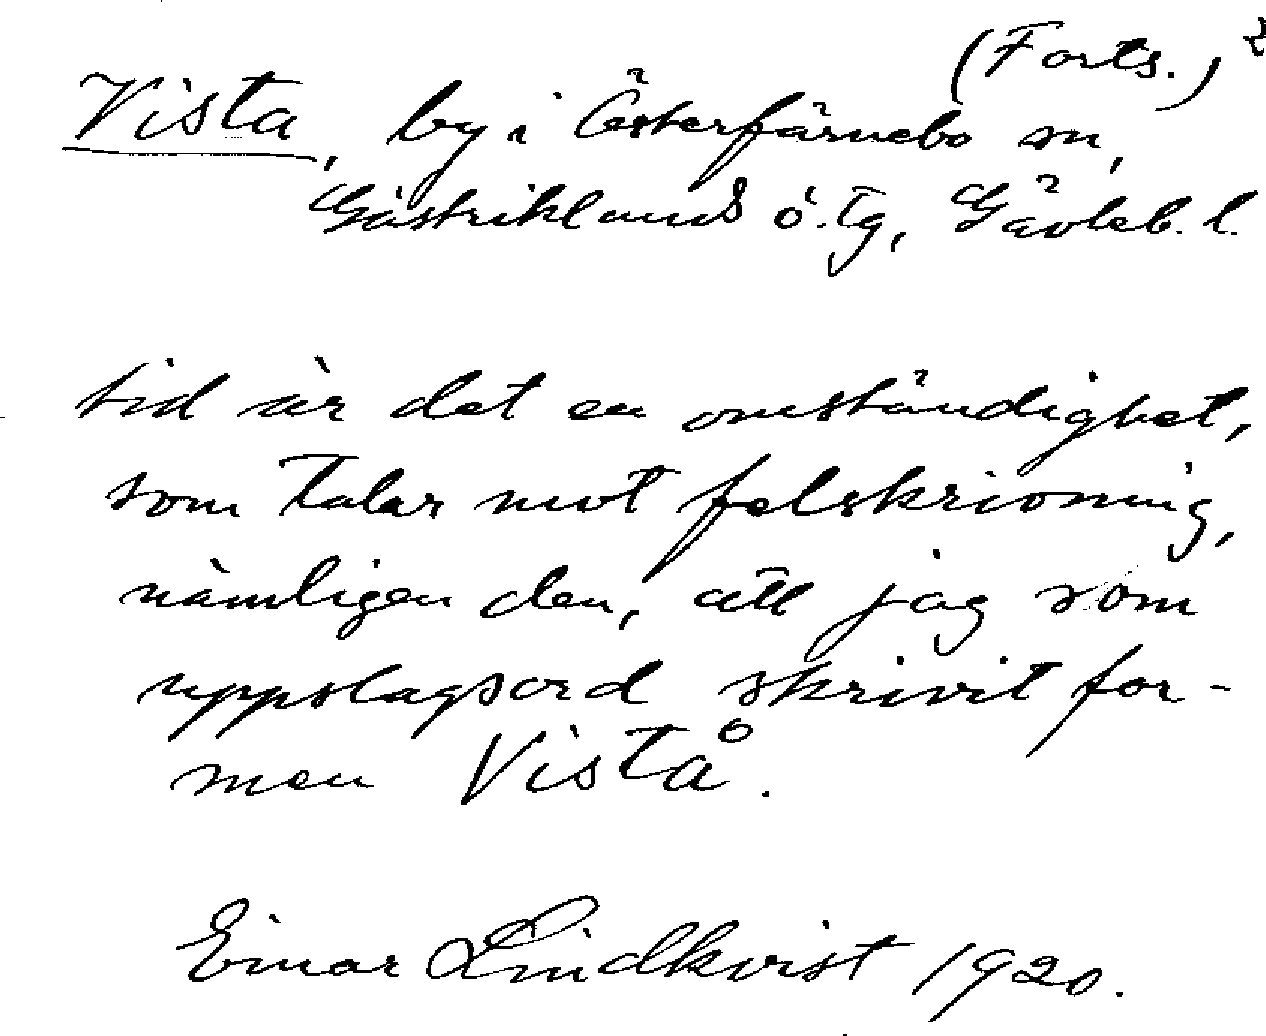 (Forts.) 2
Vista, by i Österfärnebo sn,
Gästriklands ö. tg, Gävleb. l.
tid är det en omständighet,
som talar mot felskrivning,
nämligen den, att jag som
uppslagsord skrivit for-
men Vistå.
Einar Lindkvist 1920.